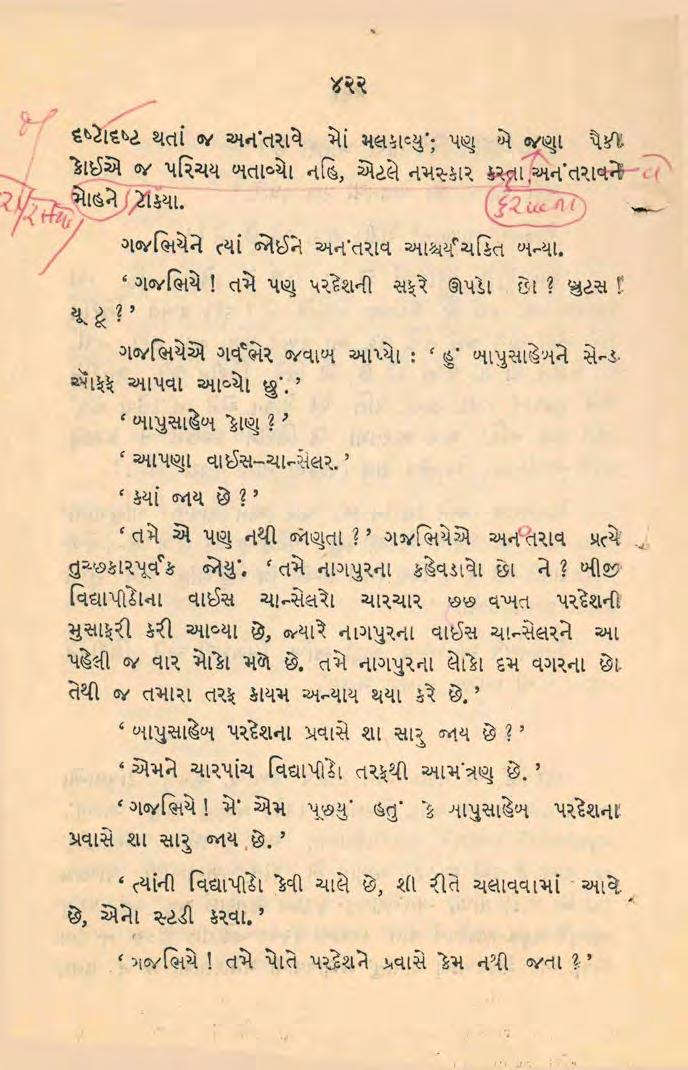 ૪૨૨
દૃષ્ટાદૃષ્ટ થતાં જ અનંતરાવે મોં મલકાવ્યું; પણ એ જણા પૈકી
કોઈએ જ પરિચય બતાવ્યો નહિ, એટલે નમસ્કાર કરતા અનંતરાવને
મોહને ટાંક્યા.
ગજભિયેને ત્યાં જોઈને અનંતરાવ આશ્ચર્યચકિત બન્યા.
‘ ગજભિયે ! તમે પણ પરદેશની સફરે ઊપડો છો ? બ્રુટસ !
યૂ ટૂ ?’
ગજભિયેએ ગર્વભેર જવાબ આપ્યો : ‘ હું બાપુસાહેબને સેન્ડ
ઑફફ આપવા આવ્યો છું.’
‘ બાપુસાહેબ કોણ ?’
‘ આપણા વાઈસ-ચાન્સેલર.’
‘ ક્યાં જાય છે ?’
‘ તમે એ પણ નથી જાણતા ?’ ગજભિયેએ અનંતરાવ પ્રત્યે
તુચ્છકારપૂર્વક જોયું. ‘ તમે નાગપુરના કહેવડાવો છો ને ? બીજી
વિદ્યાપીઠોના વાઈસ ચાન્સેલરો ચારચાર છછ વખત પરદેશની
મુસાફરી કરી આવ્યા છે, જ્યારે નાગપુરના વાઈસ ચાન્સેલરને આ
પહેલી જ વાર મોકો મળે છે. તમે નાગપુરના લોકો દમ વગરના છો
તેથી જ તમારા તરફ કાયમ અન્યાય થયા કરે છે.’
‘ બાપુસાહેબ પરદેશના પ્રવાસે શા સારુ જાય છે ?’
‘ એમને ચારપાંચ વિદ્યાપીઠો તરફથી આમંત્રણ છે.’
‘ ગજભિયે ! મેં એમ પૂછ્યું હતું કે બાપુસાહેબ પરદેશના
પ્રવાસે શા સારુ જાય છે.’
‘ ત્યાંની વિદ્યાપીઠો કેવી ચાલે છે, શી રીતે ચલાવવામાં આવે
છે, એનો સ્ટડી કરવા.’
‘ ગજભિયે ! તમે પોતે પરદેશને પ્રવાસે કેમ નથી જતા ?’